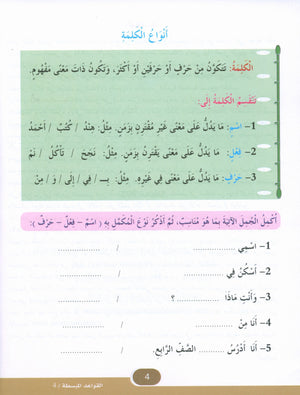 أَنْوَاعُ الْكَلِمَةِ
الْكَلِمَةُ: تَتَكَوَّنُ مِنْ حَرْفٍ أَوْ حَرْفَيْنِ أَوْ أَكْثَرَ، وَتَكُونُ ذَاتَ مَعْنًى مَفْهُومٍ.
تَنْقَسِمُ الْكَلِمَةُ إِلَى:
1- اسْمٍ: مَا يَدُلُّ عَلَى مَعْنًى غَيْرِ مُقْتَرِنٍ بِزَمَنٍ. مِثْلُ: هِنْدُ / كُتُبٌ / أَحْمَدُ
2- فِعْلٍ: مَا يَدُلُّ عَلَى مَعْنًى يَقْتَرِنُ بِزَمَنٍ. مِثْلُ: نَجَحَ / تَأْكُلُ / نَمْ
3- حَرْفٍ: مَا يَدُلُّ عَلَى مَعْنًى فِي غَيْرِهِ. مِثْلُ: بِـ / فِي / إِلَى / وَ / مِنْ
أُكْمِلُ الْجُمَلَ الْآتِيَةَ بِمَا هُوَ مُنَاسِبٌ، ثُمَّ أَذْكُرُ نَوْعَ الْمُكَمَّلِ بِهِ ( اسْمٌ – فِعْلٌ – حَرْفٌ ):
1- اسْمِي .................. / ..................
2- أَسْكُنُ فِي .................. / ..................
3- وَأَنْتِ مَاذَا ..................؟ / ..................
4- أَنَا مِنْ .................. / ..................
5- أَنَا أَدْرُسُ .......... الصَّفِّ الرَّابِعِ. / ..................
4
القواعد المبسطة / 4